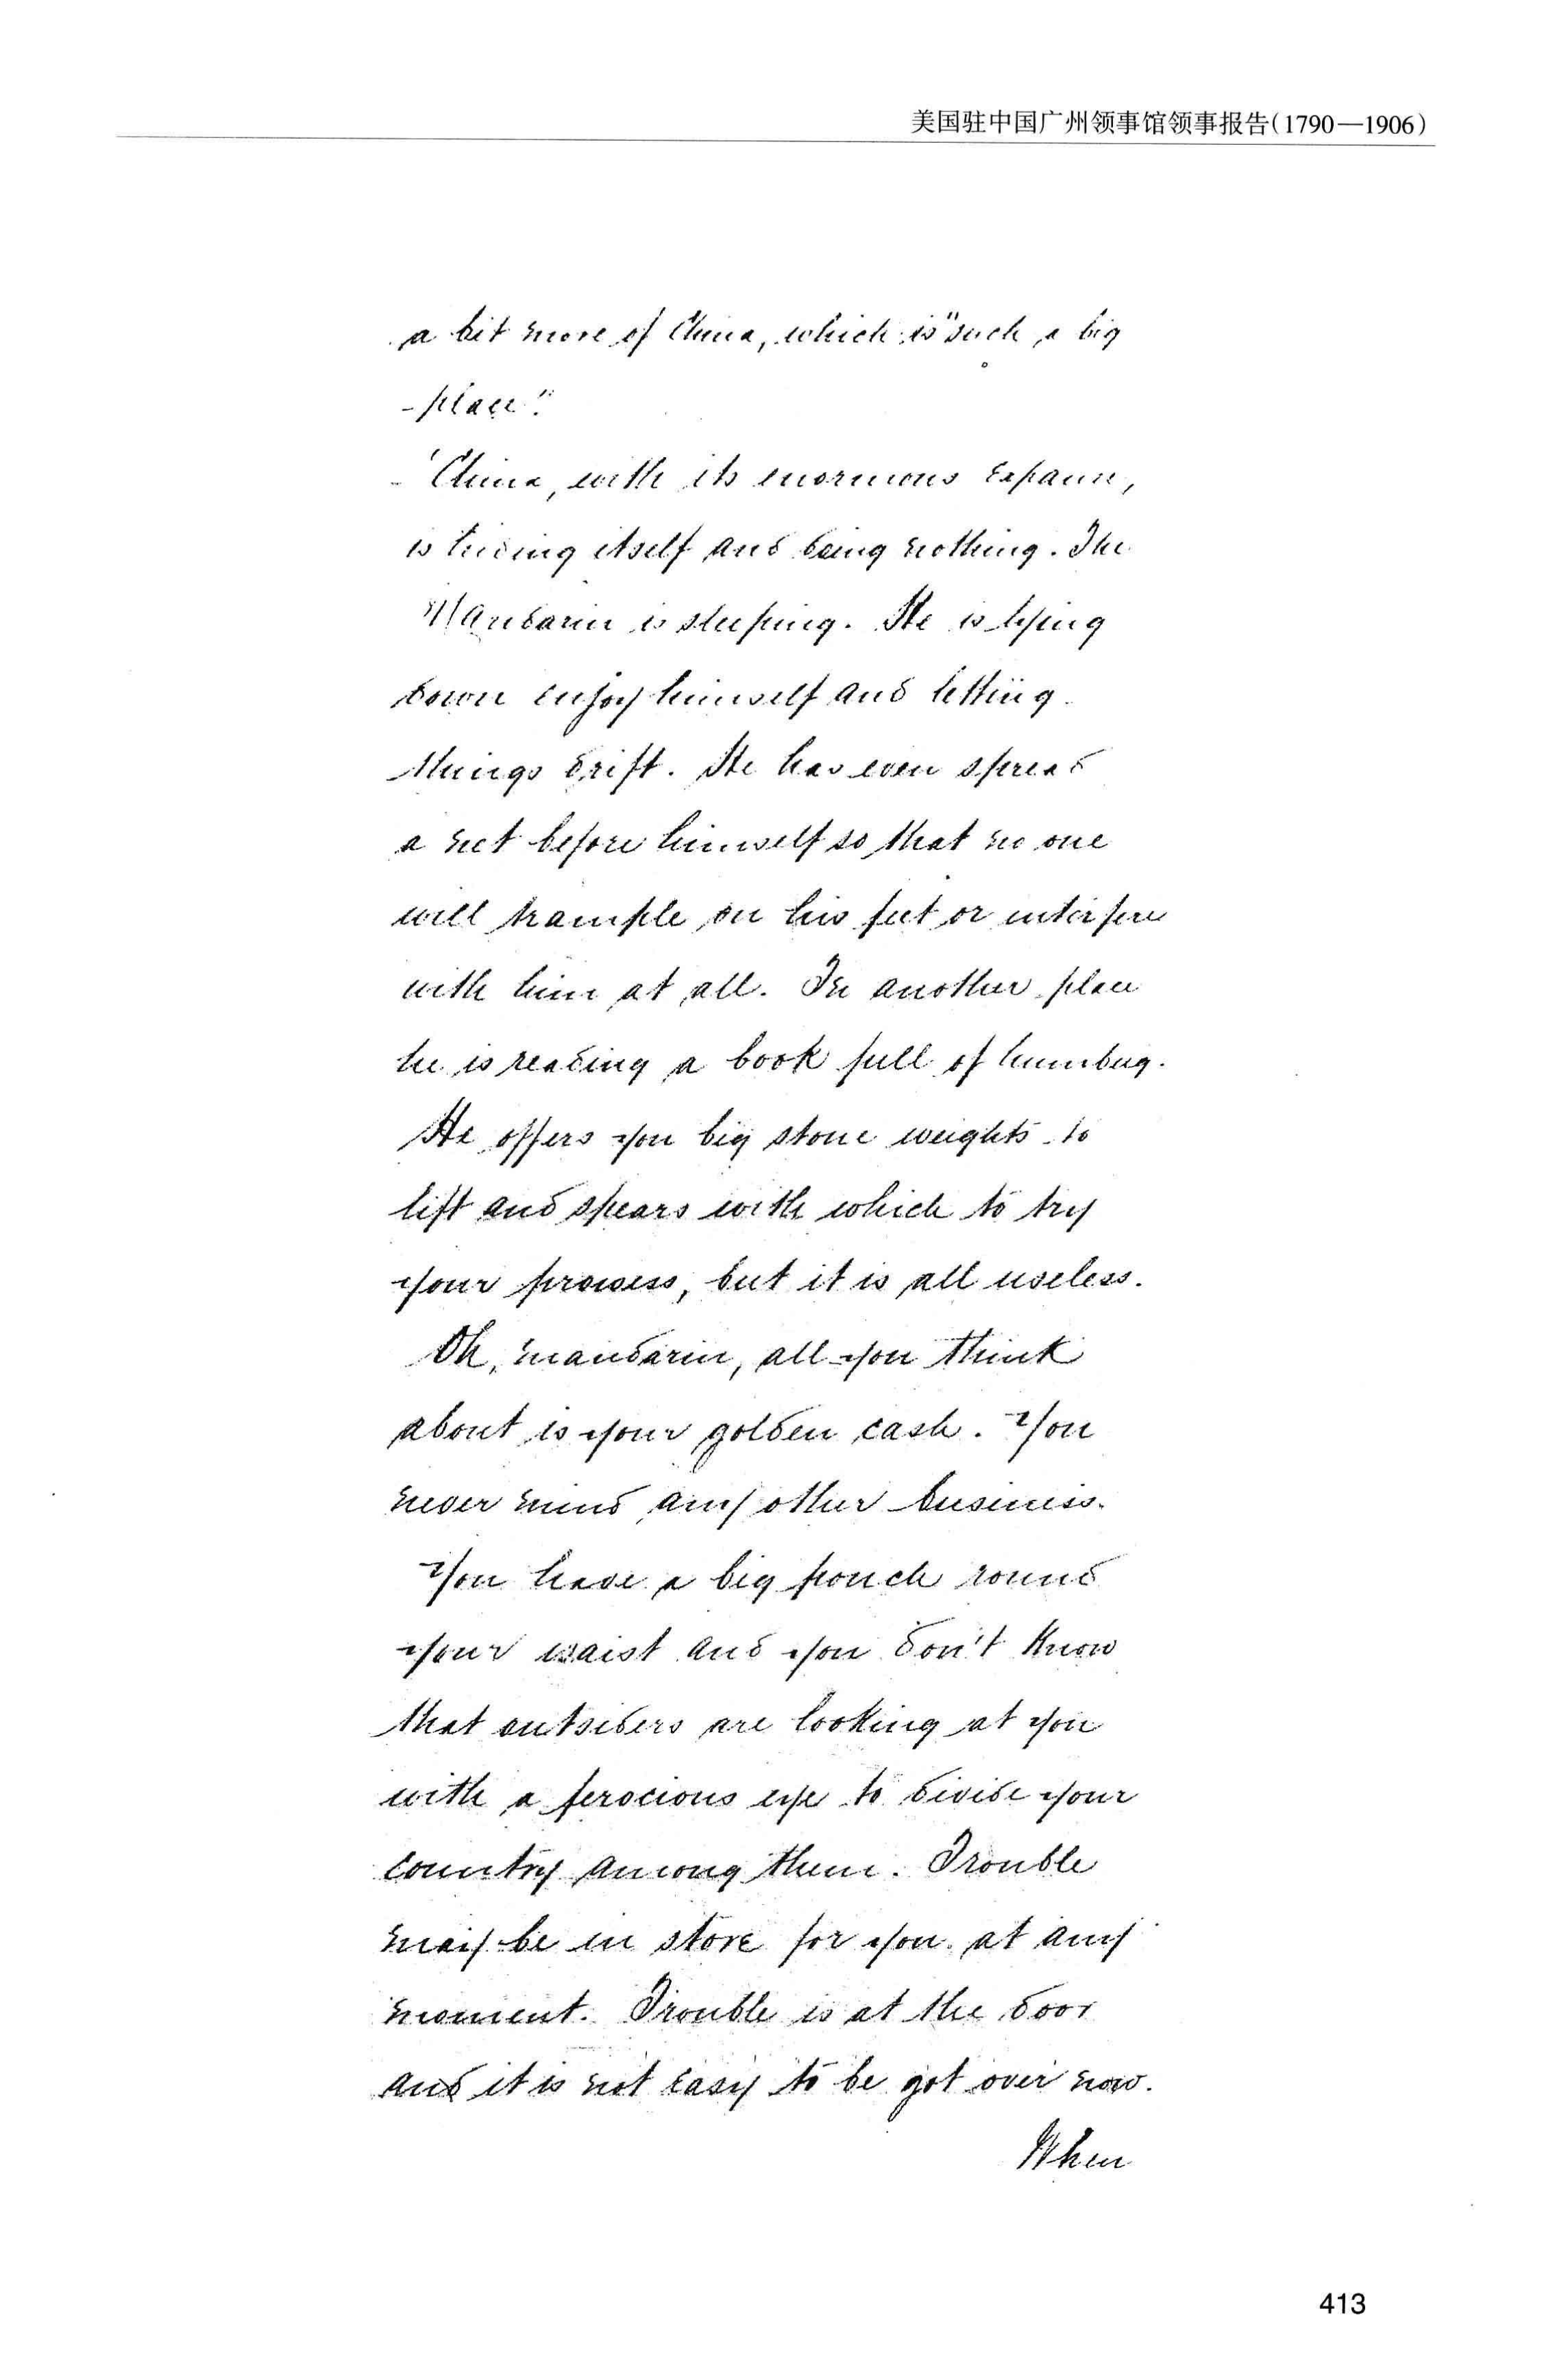 美国驻中国广州领事馆领事报告(1790—1906)
a bit more of China, which is "such a big
place".
"China, with its enormous expanse,
is hiding itself and doing nothing. The
Mandarin is sleeping. He is lying
down enjoy himself and letting
things drift. He has even spread
a net before himself so that no one
will trample on his feet or interfere
with him at all. In another place
he is reading a book full of humbug.
He offers you big stone weights to
lift and spears with which to try
your prowess, but it is all useless.
Oh, mandarin, all you think
about is your golden cash. You
never mind any other business.
You have a big pouch round
your waist and you don't know
that outsiders are looking at you
with a ferocious eye to divide your
country among them. Trouble
may be in store for you at any
moment. Trouble is at the door
and it is not easy to be got over now.
When
413